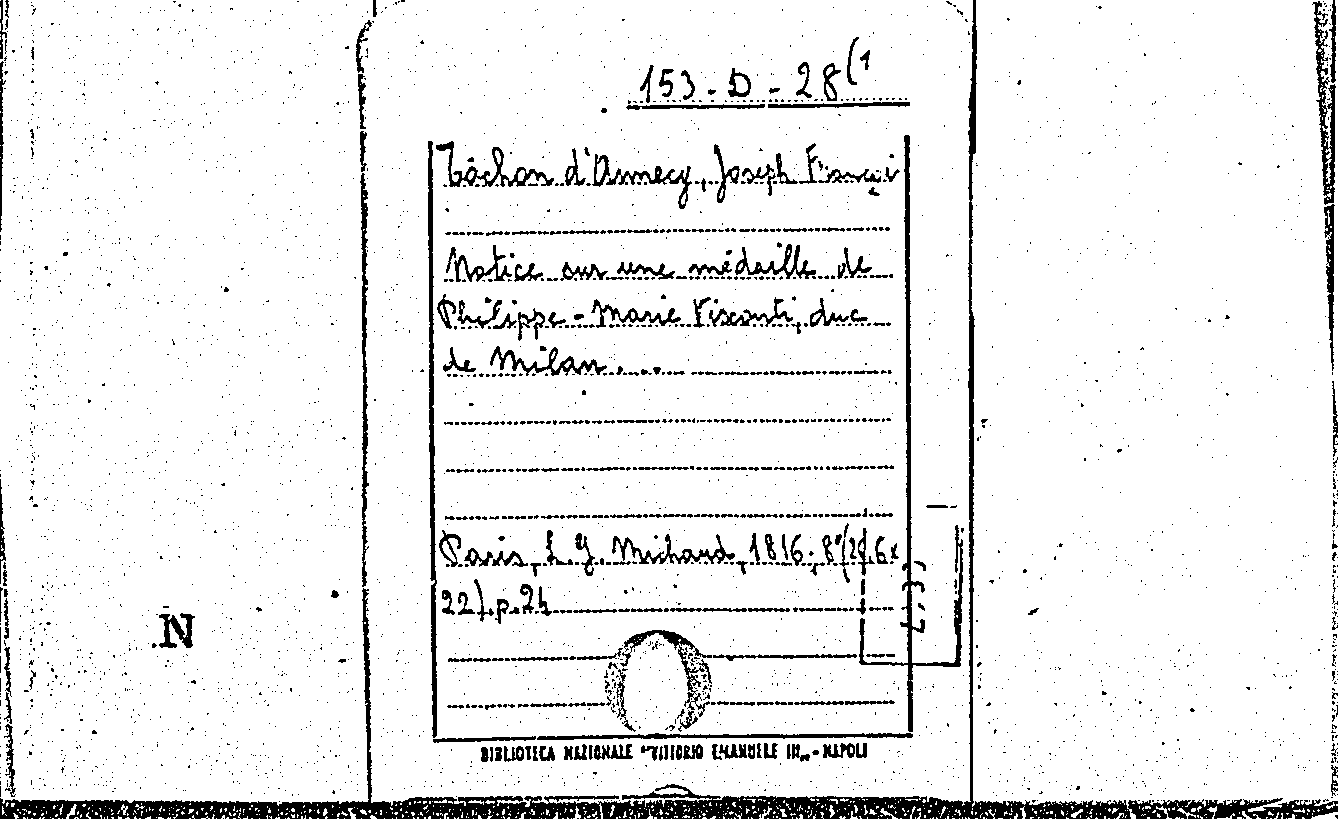 153-D-28(1
Tôchon d'Annecy, Joseph Françoi
Notice sur une médaille de
Philippe-Marie Visconti, duc
de Milan...
Paris, L.G. Michaud, 1816; 8°
22). p. 24
N
BIBLIOTECA NAZIONALE "VITTORIO EMANUELE III" - NAPOLI